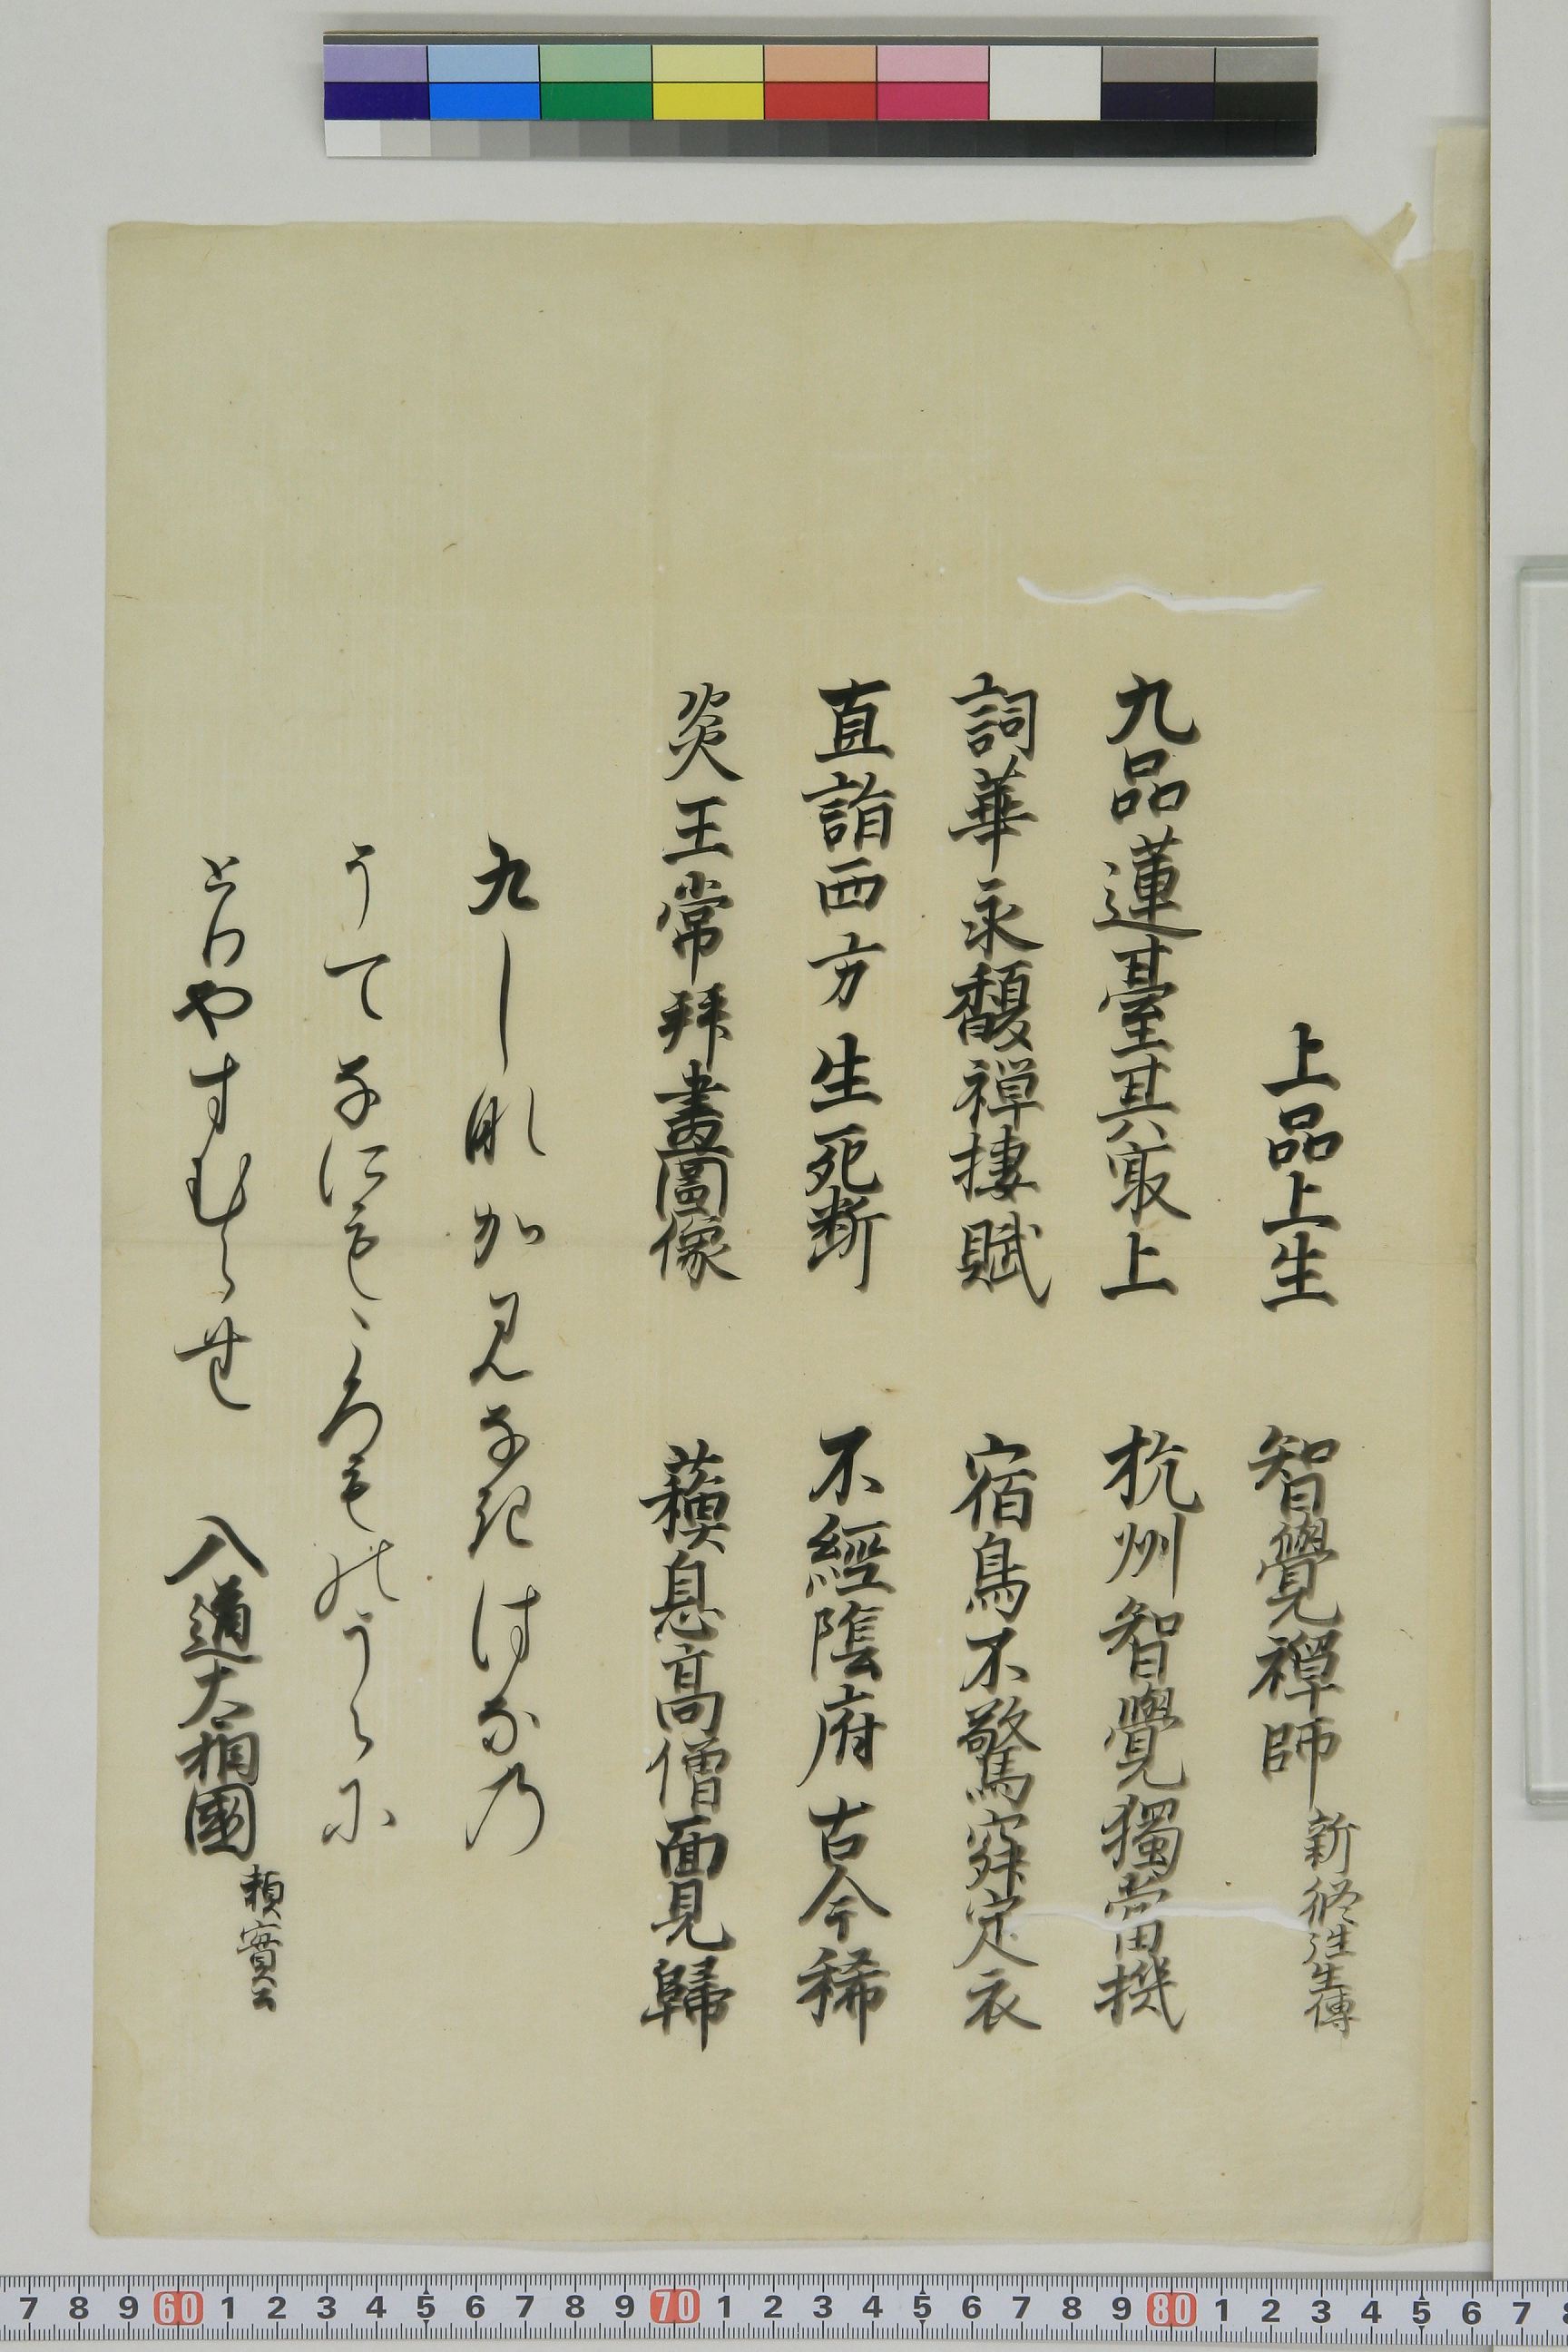 上品上生 智覺禪師 新修往生傳
九品蓮臺其冣上 杭州智覺獨當機
詞華永馥禅捿賦 宿鳥不驚寂定衣
直詣西方生死断 不經陰府古今稀
炎王常拜畫圖像 蘓息高僧面見歸
九しなかみなきはなの
うてなにもころものうらに
とりやすむらむ 入道大相國 頼實公
7 8 9 60 1 2 3 4 5 6 7 8 9 70 1 2 3 4 5 6 7 8 9 80 1 2 3 4 5 6 7